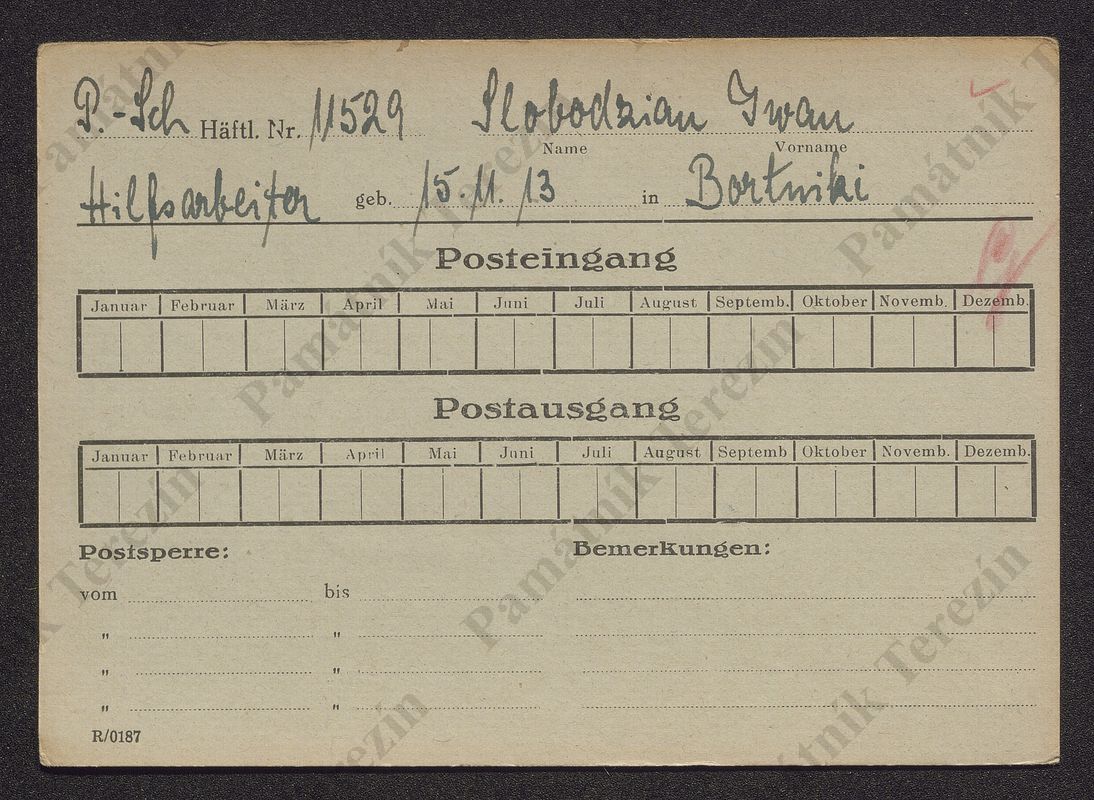 P.-Sch Häftl. Nr. 11529 Slobodzian Iwan
Name Vorname
Hilfsarbeiter geb. 15.11.13 in Bortniki
Posteingang
Januar Februar März April Mai Juni Juli August Septemb. Oktober Novemb. Dezemb.
Postausgang
Januar Februar März April Mai Juni Juli August Septemb Oktober Novemb. Dezemb.
Postsperre: Bemerkungen:
vom bis
" "
" "
" "
R/0187
Památník Terezín